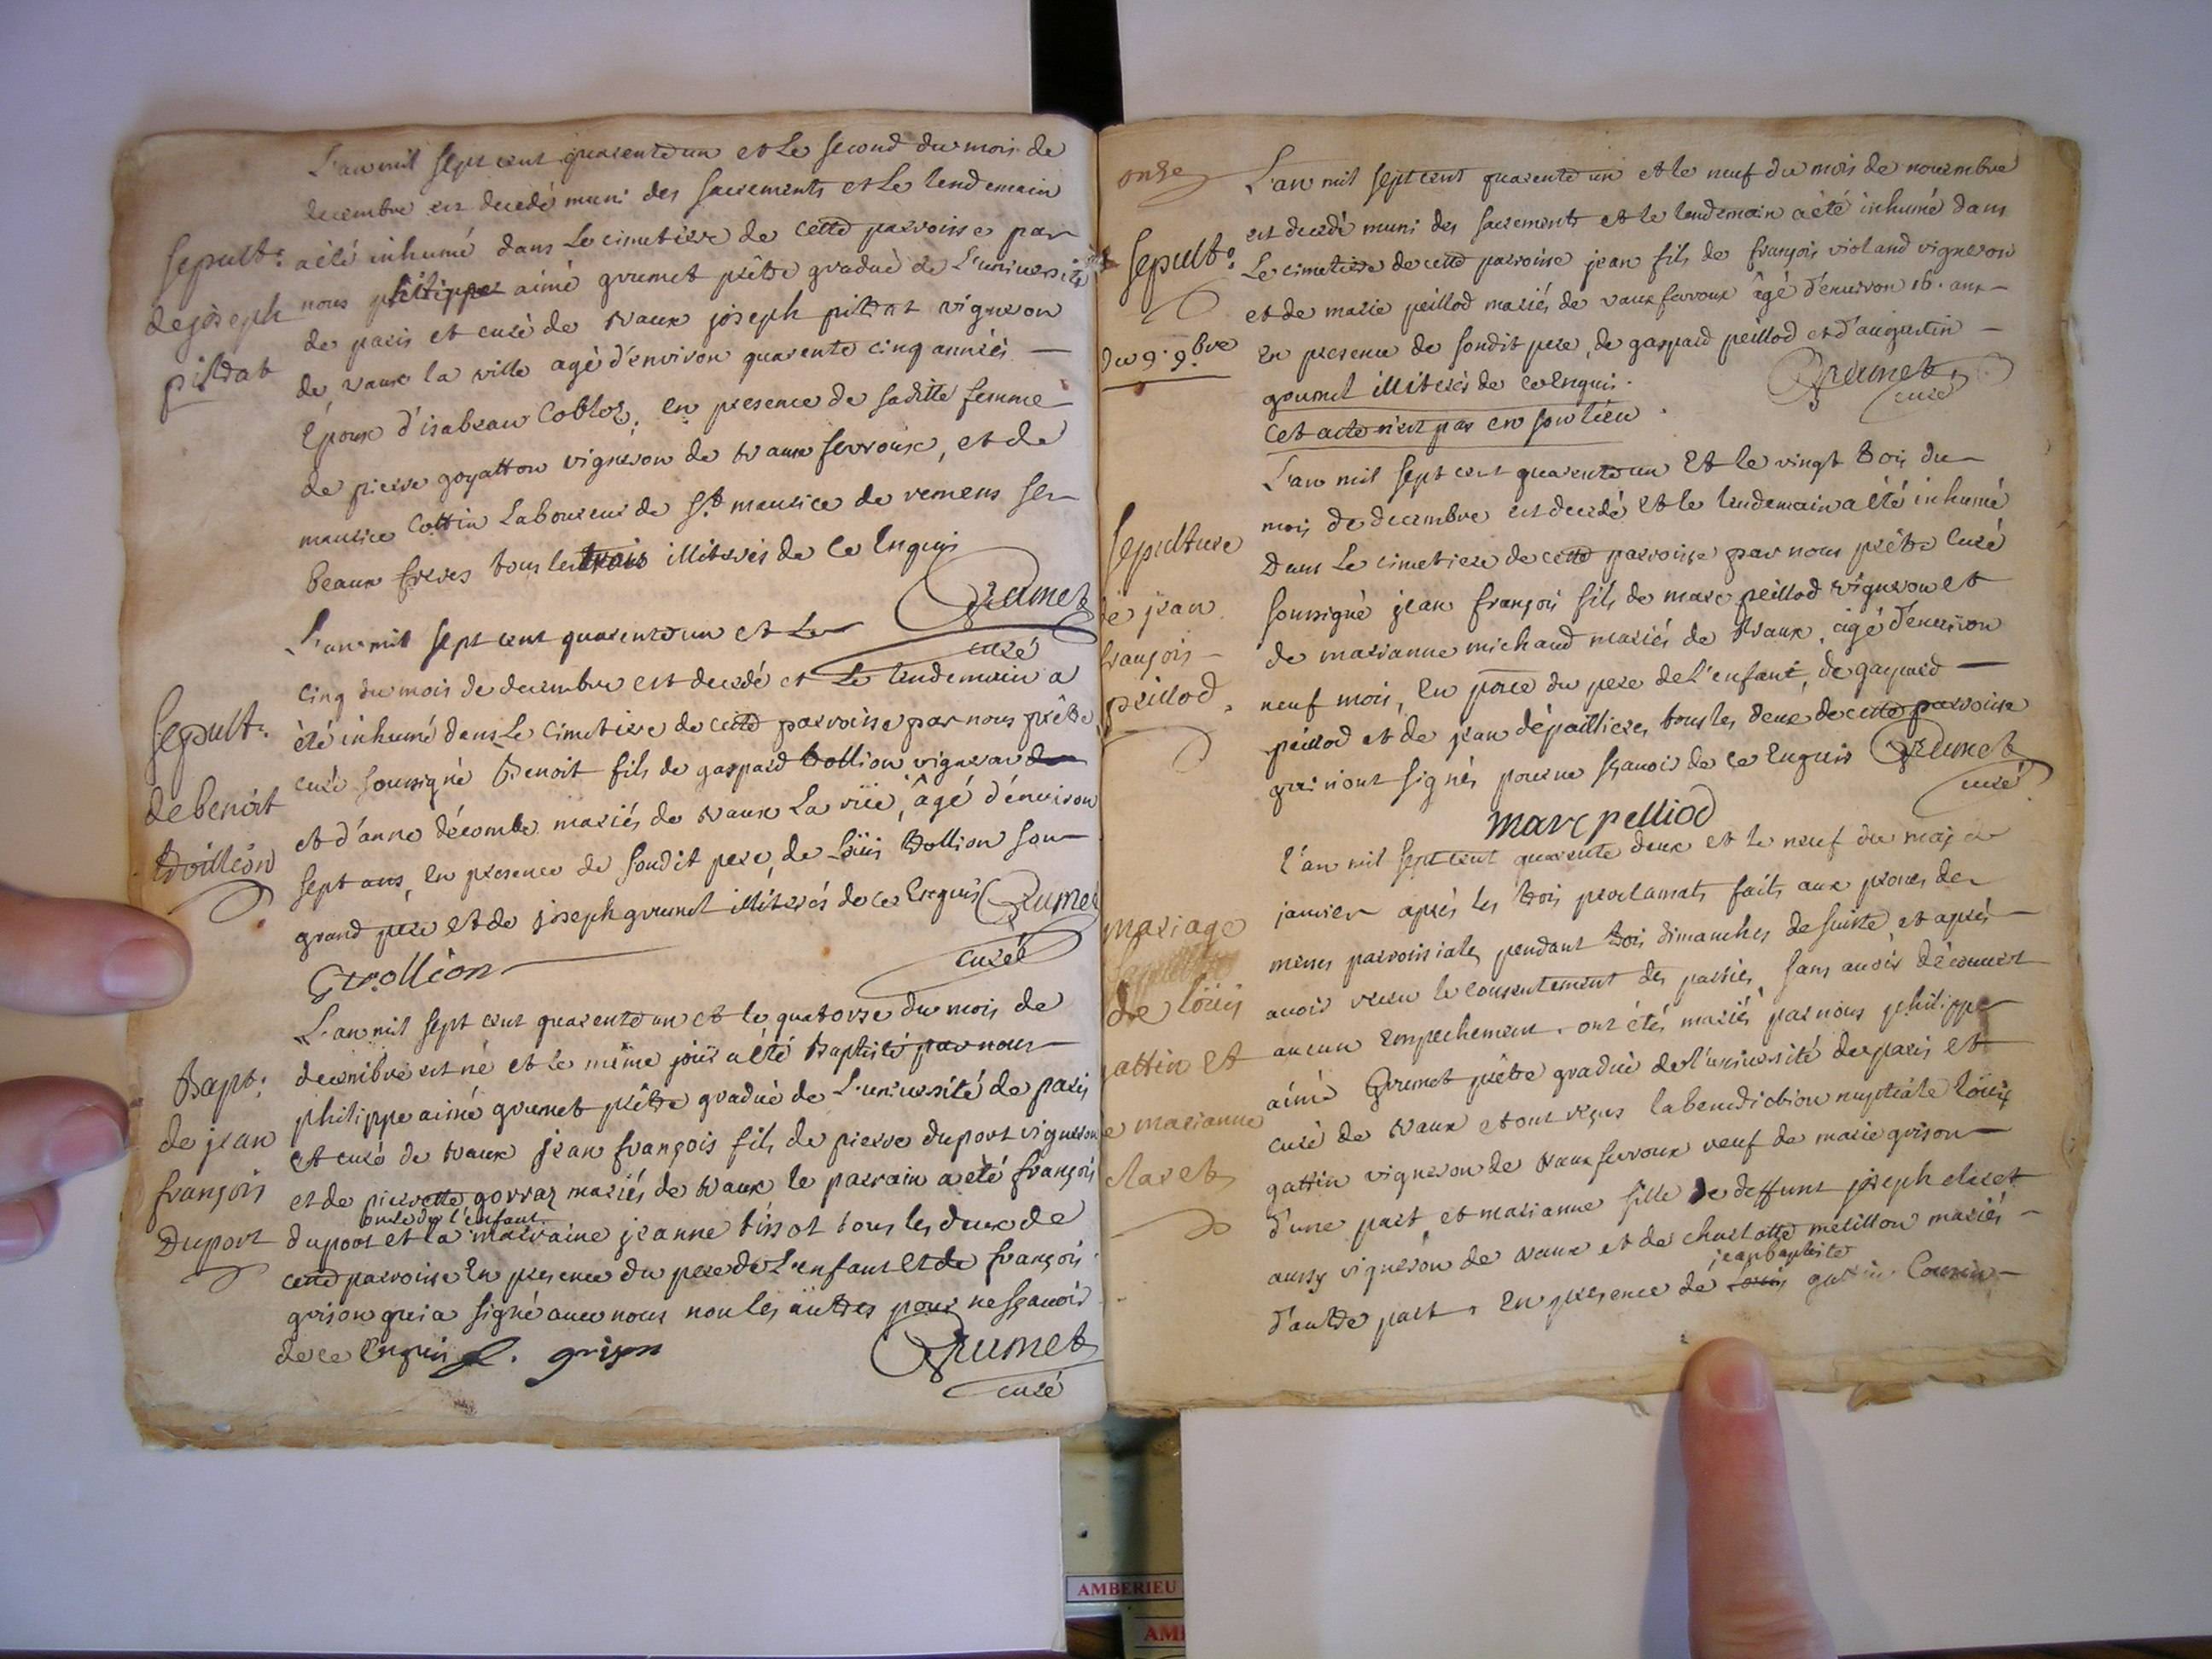 L'an mil sept cent quarente un et le second du mois de
decembre est decedé muni des sacrements et le lendemain
a été inhumé dans le cimetiere de cette parroisse par
nous philippe aimé grumet prêtre gradué de L'université
de paris et curé de vaux joseph pitrat vigneron
de vaux la ville agé d'environ quarente cinq années
Epoux d'isabeau Coblot, en presence de saditte femme
de pierre goyatton vigneron de vaux fevroux, et de
maurice Cottin Laboureur de St maurice de remens ses
beaux freres tous les trois illiterés de ce Enquis
Grumet
curé
Sepult:
de joseph
pitrat
L'an mil sept cent quarente un et Le
cinq du mois de decembre est decedé et Le lendemain a
été inhumé dans Le cimetiere de cette parroisse par nous prêtre
curé soussigné Benoit fils de gaspard trollion vigneron
et d'anne décombe mariés de vaux La ville, âgé d'environ
sept ans, En presence de sondit pere, de Loüis trollion son
grand pere et de joseph grumet illiterés de ce Enquis Grumet
curé
G trollion
Sepult:
de benoit
trollion
L'an mil sept cent quarente un et le quatorze du mois de
decembre est né et le même joür a été Baptisé par nous
philippe aimé grumet prêtre gradué de L'université de paris
et curé de vaux jean françois fils de pierre duport vigneron
et de pierrette gorraz mariés de vaux le parrain a été françois
oncle de l'enfant
duport et la marraine jeanne tissot tous les deux de
cette parroisse En presence du pere de L'enfant et de françois
grison qui a signé avec nous non les autres pour ne sçavoir
de ce Enquis f. grison
Grumet
curé
Bapt:
de jean
françois
Duport
onze
L'an mil sept cent quarente un et le neuf du mois de novembre
est decedé muni des sacrements et le lendemain a été inhumé dans
Le cimetiere de cette parroisse jean fils de françois violand vigneron
et de marie peillod mariés de vaux fevroux âgé d'environ 16. ans
En presence de sondit pere, de gaspard peillod et d'augustin
goumet illiterés de ce Enquis.
Grumet
curé
cet acte n'est pas en son lieu.
Sepult:
Du 9. 9bre
L'an mil sept cent quarente un Et le vingt trois du
mois de decembre est decedé Et le lendemain a été inhumé
Dans Le cimetiere de cette parroisse par nous prêtre Curé
soussigné jean françois fils de marc peillod vigneron et
de marianne michaud mariés de Vaux, agé d'environ
neuf mois, En pnce du pere de L'enfant, de gaspard
peillod et de jean dépallieres, tous les deux de cette parroisse
qui n'ont signés pour ne sçavoir de ce Enquis Grumet
curé
marc pelliod
Sepulture
de jean
françois
peillod.
L'an mil sept cent quarente deux et le neuf du mois de
janvier après les trois proclamats faits aux prones des
messes parroissiales pendant trois dimanches de suitte et aprés
avoir receu le consentement des parties, sans avoir découvert
aucun Empechement. ont étés mariés par nous philippe
aimé Grumet prêtre gradué de l'université de paris et
curé de Vaux et ont reçus la benediction nuptiale loüis
gattin vigneron de vaux fevroux veuf de marie grison
d'une part et marianne fille de deffunt joseph claret
aussy vigneron de vaux et de charlotte merillon mariés
jean baptiste
d'autre part. En presence de Loüis gattin Cousin
mariage
de loüis
gattin et
de marianne
claret
AMBERIEU
AM